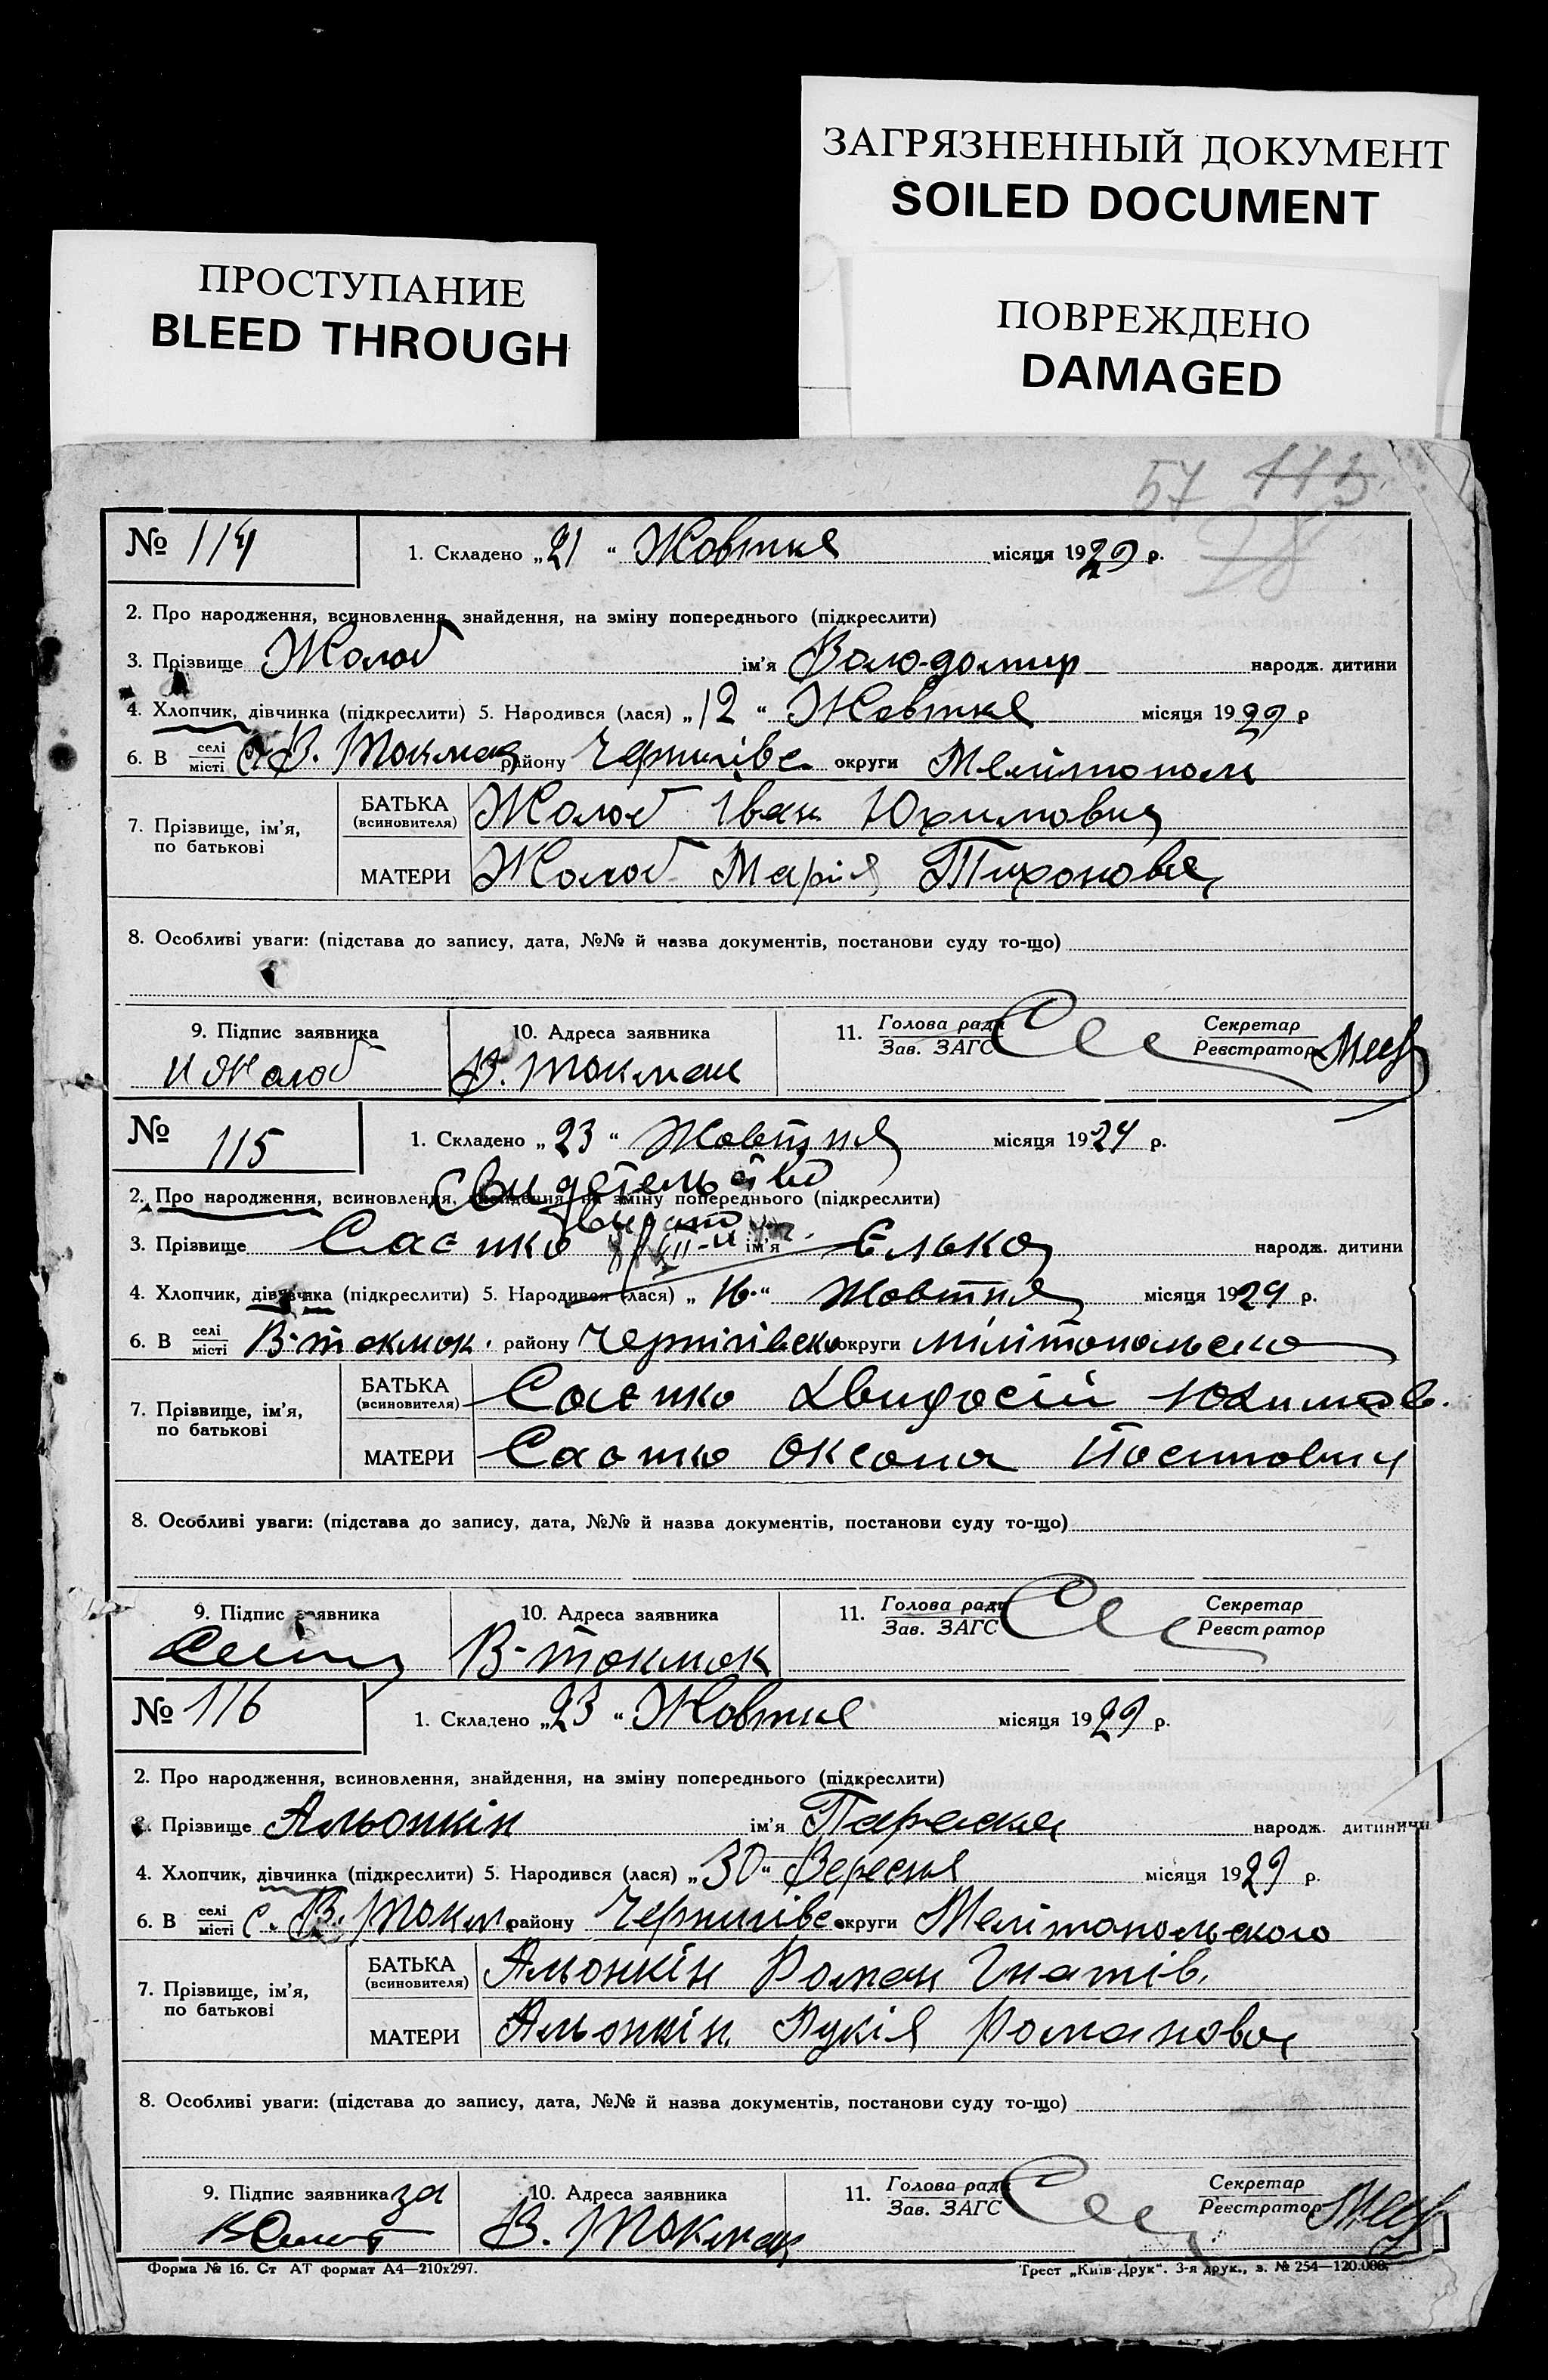 ЗАГРЯЗНЕННЫЙ ДОКУМЕНТ
SOILED DOCUMENT
ПРОСТУПАНИЕ
BLEED THROUGH
ПОВРЕЖДЕНО
DAMAGED
57 113
28
№ 114 1. Складено „21“ Жовтня місяця 1929 р.
2. Про народження, всиновлення, знайдення, на зміну попереднього (підкреслити)
3. Прізвище Жолоб ім'я Воло-домир народж. дитини
4. Хлопчик, дівчинка (підкреслити) 5. Народився (лася) „12“ Жовтня місяця 1929 р
6. В селі/місті с. В. Токмак району Чернигівс округи Мелітополь
7. Прізвище, ім'я, по батькові БАТЬКА (всиновителя) Жолоб Іван Юхимович
МАТЕРИ Жолоб Марія Тихонова
8. Особливі уваги: (підстава до запису, дата, №№ й назва документів, постанови суду то-що)
9. Підпис заявника 10. Адреса заявника 11. Голова ради/Зав. ЗАГС Секретар/Реєстратор
И Жолоб В. Токмак
№ 115 1. Складено „23“ Жовтня місяця 1929 р.
Свидетельство
2. Про народження, всиновлення, знайдення, на зміну попереднього (підкреслити)
3. Прізвище ім'я Єлька народж. дитини
4. Хлопчик, дівчинка (підкреслити) 5. Народився (лася) „16“ Жовтня місяця 1929 р.
6. В селі/місті В-токмак. району Чернігівско округи мілітопольско
7. Прізвище, ім'я, по батькові БАТЬКА (всиновителя)
МАТЕРИ Оксана
8. Особливі уваги: (підстава до запису, дата, №№ й назва документів, постанови суду то-що)
9. Підпис заявника 10. Адреса заявника 11. Голова ради/Зав. ЗАГС Секретар/Реєстратор
В-токмак
№ 116 1. Складено „23“ Жовтня місяця 1929 р.
2. Про народження, всиновлення, знайдення, на зміну попереднього (підкреслити)
3. Прізвище Альонкін ім'я Параска народж. дитини
4. Хлопчик, дівчинка (підкреслити) 5. Народився (лася) „30“ Вересня місяця 1929 р.
6. В селі/місті с. В. Токм. району Чернигівс округи Мелітопольского
7. Прізвище, ім'я, по батькові БАТЬКА (всиновителя) Альонкін Роман Гнатів.
МАТЕРИ Альонкін Лукія Романова
8. Особливі уваги: (підстава до запису, дата, №№ й назва документів, постанови суду то-що)
9. Підпис заявника за 10. Адреса заявника 11. Голова ради/Зав. ЗАГС Секретар/Реєстратор
В. Токмак
Форма № 16. Ст АТ формат А4—210х297. Трест „Київ-Друк“. 3-я друк., з. № 254—120.000.